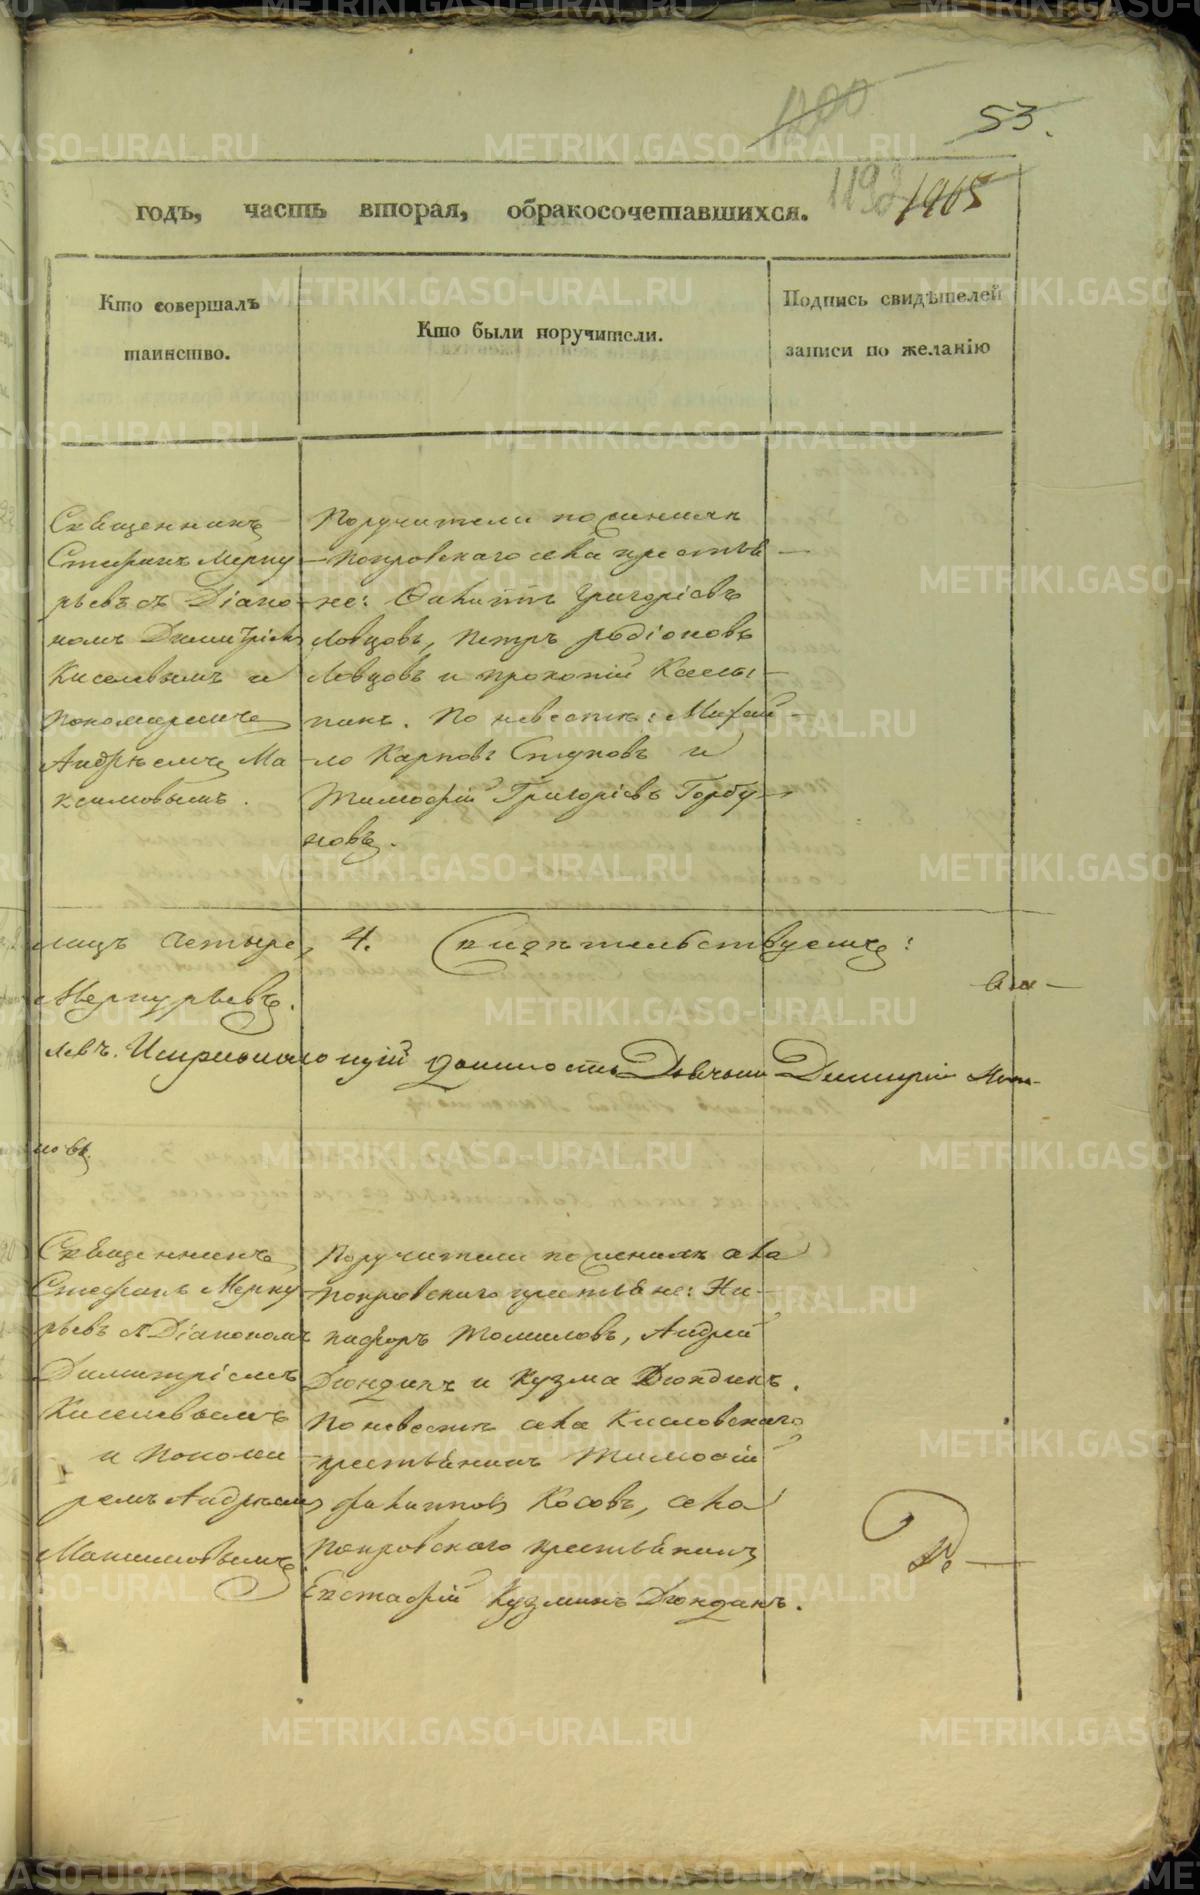 1200
53.
1192
1965
годъ, часть вторая, о бракосочетавшихся.
Кто совершалъ
таинство.
Кто были поручители.
Подпись свидѣтелей
записи по желанію
Священникъ
Стефанъ Мерку
рьевъ съ Діако
номъ Димитріем
Киселевымъ и
Пономаремъ
Андрѣемъ Ма
ксимовымъ.
Поручители по женихѣ
Покровскаго села крестья
не: Филиппъ Григорієвъ
Ловцовъ, Петръ Родіоновъ
Ловцовъ и Прокопій
По невѣстѣ: Михай
ло Карповъ Ступовъ и
Тимофій Григорієвъ Горбу
новъ.
лицъ четыре, 4. Свидѣтельствуемъ:
Меркурьевъ.
левъ. Исправляющій должность Дьячка Димитрій
новъ
Священникъ
Стефанъ Мерку
рьевъ съ Діакономъ
Димитріемъ
Киселевымъ
и Понома
ремъ Андрѣем
Максимовымъ
Поручители по женихѣ села
Покровскаго крестьяне: Ни
кифоръ Томиловъ, Андрей
Дюндинъ и Кузма Дюндинъ.
По невѣстѣ села Кисловскаго
крестьянинъ Тимофій
Филипповъ Косовъ, села
Покровскаго крестьянинъ
Евстафій Кузминъ Дюндинъ.
METRIKI.GASO-URAL.RU